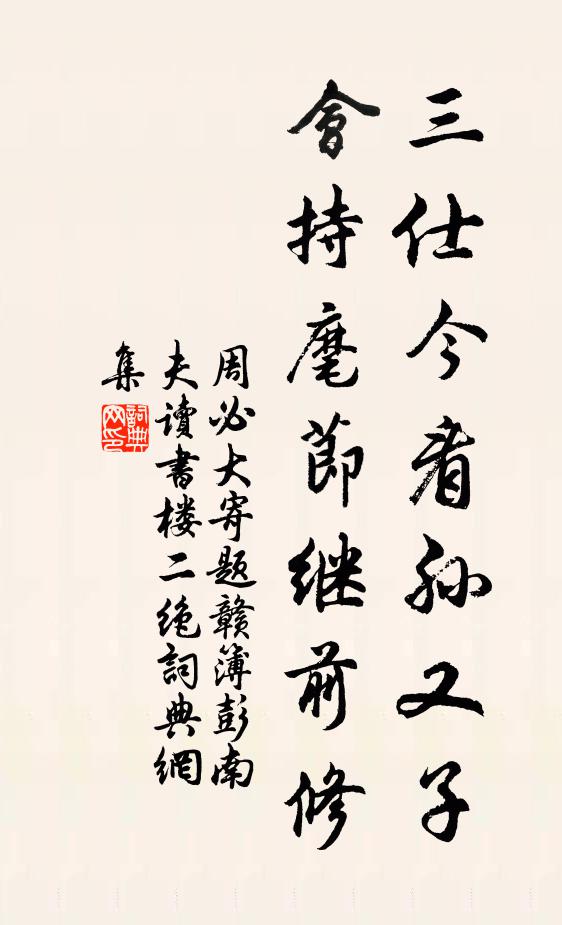 三仕今看孙又子
會持麾節继前修
周必大寄题赣簿彭南
夫讀書楼二绝詞典網
集
詞典网印